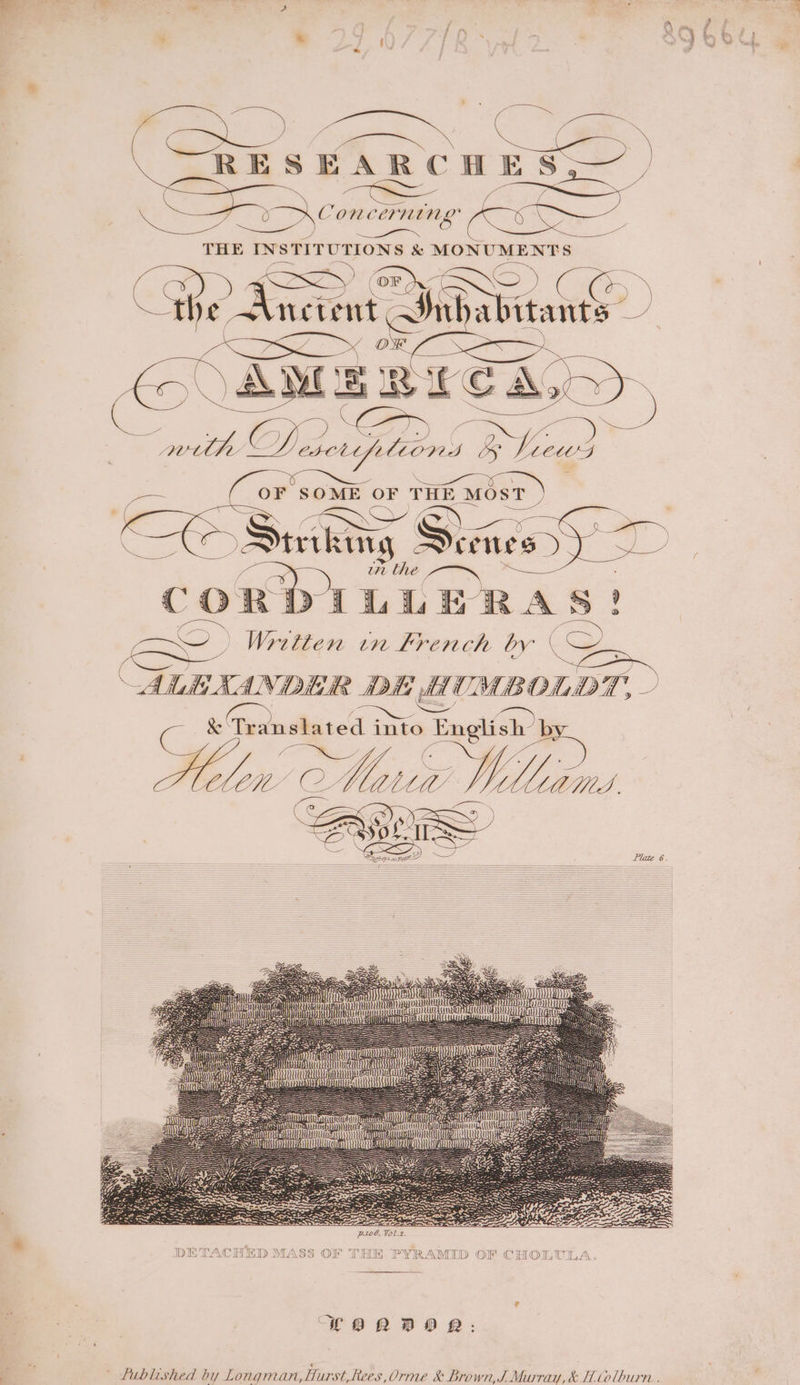 89664
RESEARCHES,
Concerning
THE INSTITUTIONS & MONUMENTS
OF
the Ancient Inhabitants
OF
AMERICA,
with Descriptions & Views
OF SOME OF THE MOST
Striking Scenes
in the
CORDILLERAS!
Written in French by
ALEXANDER DE HUMBOLDT,
& Translated into English by
Helen Maria Williams.
Vol. II
Plate 6.
p.106. Vol.2.
DETACHED MASS OF THE PYRAMID OF CHOLULA.
LONDON:
Published by Longman, Hurst, Rees, Orme & Brown, J. Murray, & H. Colburn.